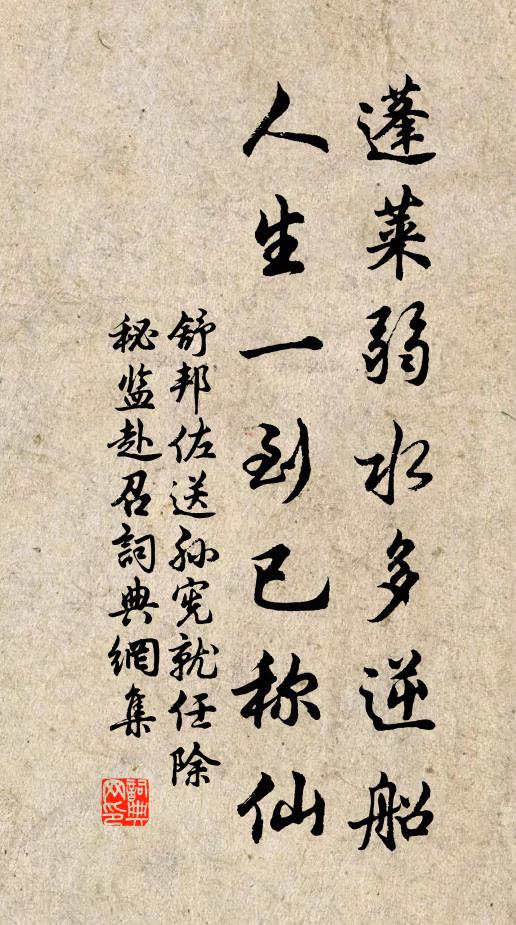 蓬莱弱水多逆船
人生一到已称仙
舒邦佐送孙宪就任除
秘监赴召詞典網集
詞典網印